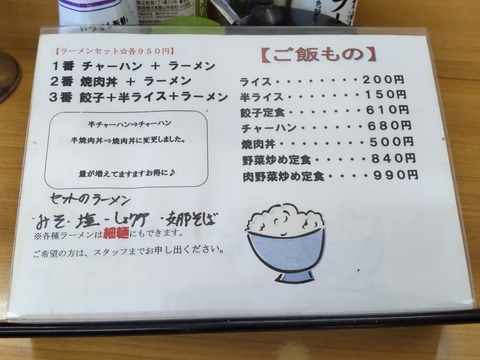 【ラーメンセット☆各950円】
1番 チャーハン + ラーメン
2番 焼肉丼 + ラーメン
3番 餃子+半ライス+ラーメン
半チャーハン⇒チャーハン
半焼肉丼⇒焼肉丼に変更しました。
量が増えてますますお得に♪
セットのラーメン
みそ・塩・しょうゆ・支那そば
※各種ラーメンは細麺にもできます。
ご希望の方は、スタッフまでお申し出ください。
【ご飯もの】
ライス・・・・・・・・200円
半ライス・・・・・・・150円
餃子定食・・・・・・・610円
チャーハン・・・・・・680円
焼肉丼・・・・・・・・500円
野菜炒め定食・・・・・840円
肉野菜炒め定食・・・・990円